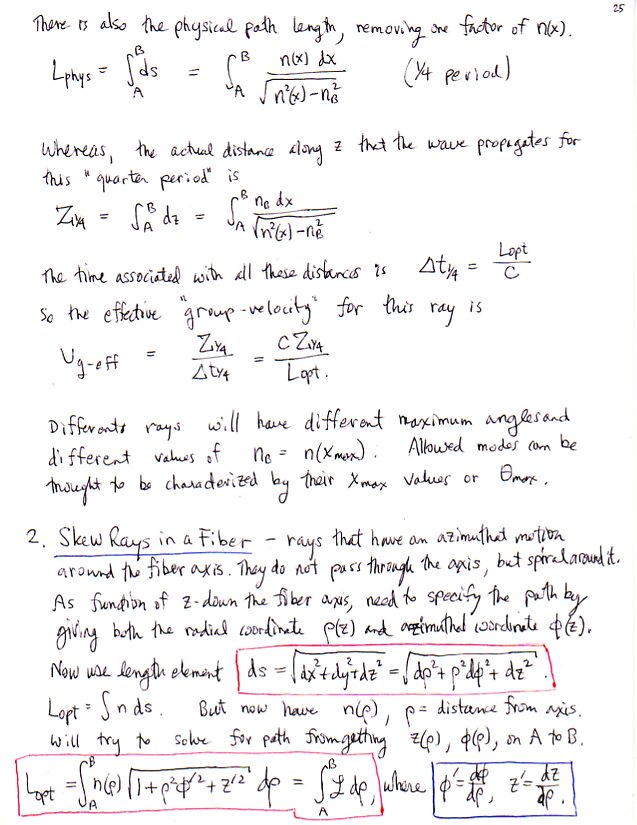 25
There is also the physical path length, removing one factor of n(x).
L_phys = ∫_A^B ds = ∫_A^B n(x) dx / √(n²(x) − n_B²) (1/4 period)
Whereas, the actual distance along z that the wave propagates for
this "quarter period" is
Z_1/4 = ∫_A^B dz = ∫_A^B n_B dx / √(n²(x) − n_B²)
The time associated with all these distances is Δt_1/4 = L_opt / C
So the effective "group-velocity" for this ray is
v_g-eff = Z_1/4 / Δt_1/4 = C Z_1/4 / L_opt.
Differents rays will have different maximum angles and
different values of n_B = n(x_max). Allowed modes can be
thought to be characterized by their x_max values or θ_max.
2. Skew Rays in a Fiber – rays that have an azimuthal motion
around the fiber axis. They do not pass through the axis, but spiral around it.
As function of z-down the fiber axis, need to specify the path by
giving both the radial coordinate ρ(z) and azimuthal coordinate φ(z).
Now use length element ds = √(dx² + dy² + dz²) = √(dρ² + ρ²dφ² + dz²).
L_opt = ∫ n ds. But now have n(ρ), ρ = distance from axis.
Will try to solve for path from getting z(ρ), φ(ρ), on A to B.
L_opt = ∫_A^B n(ρ) √(1 + ρ²φ'² + z'²) dρ = ∫_A^B ℒ dρ, where φ' = dφ/dρ, z' = dz/dρ.